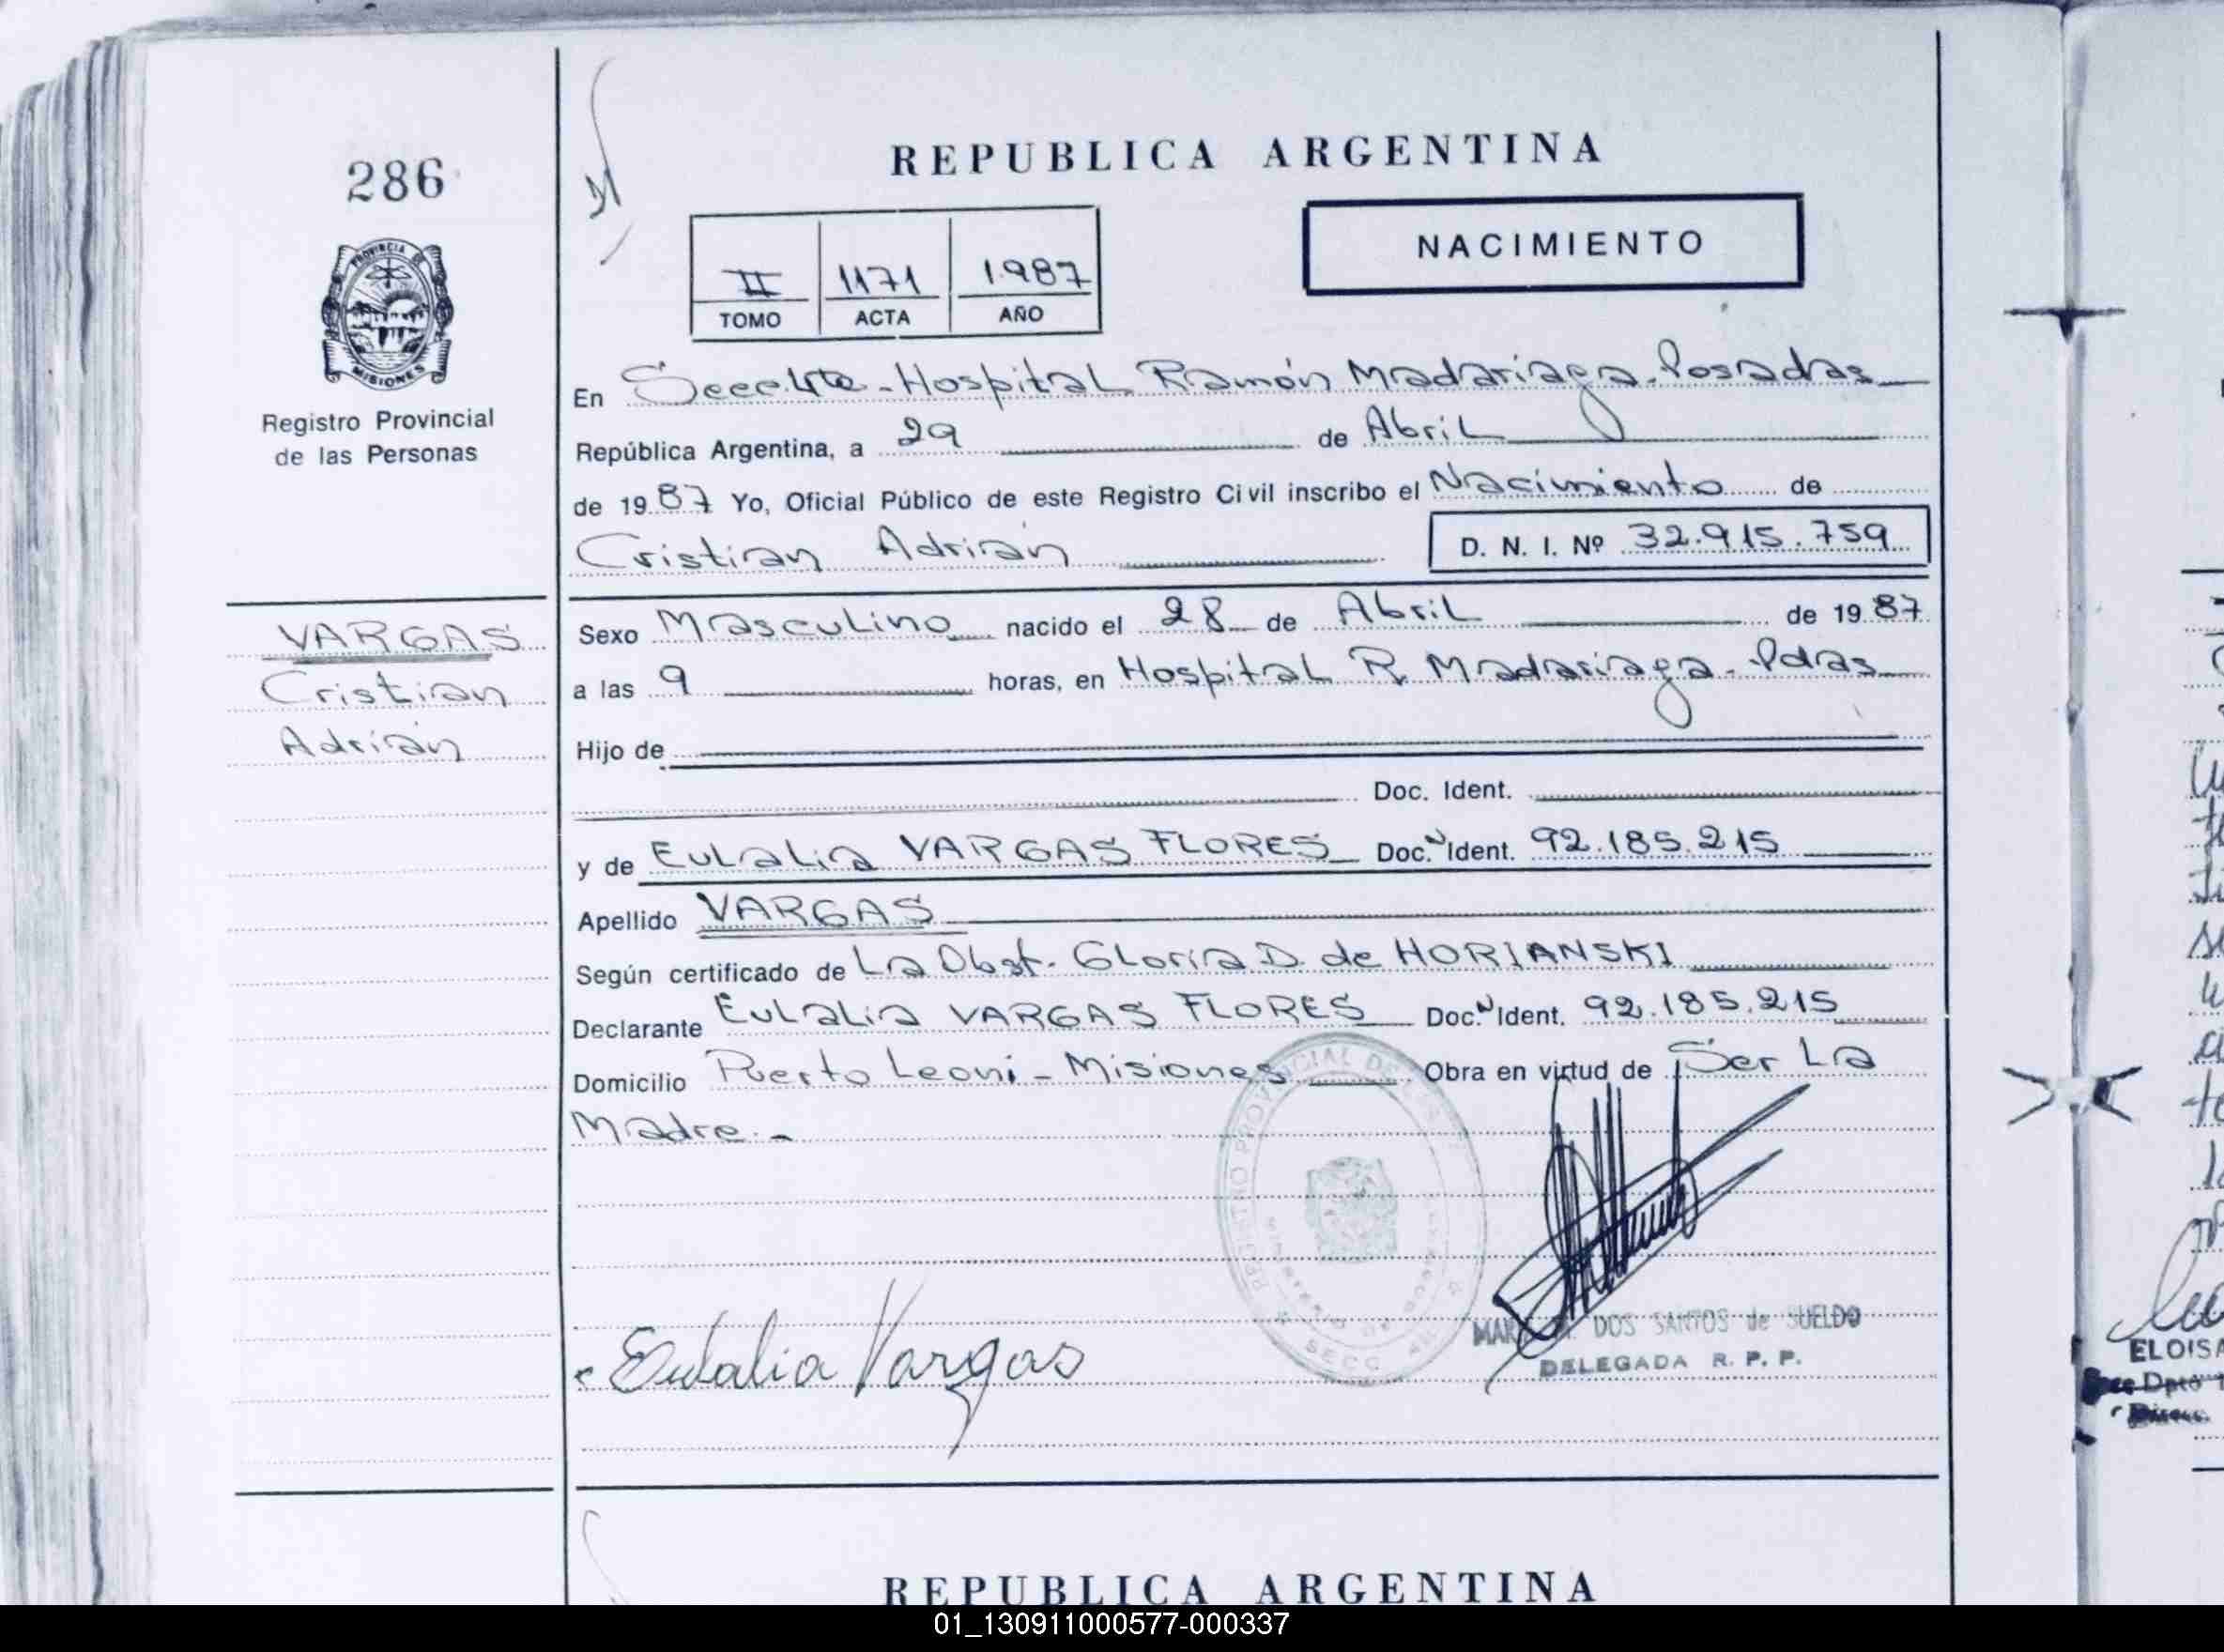 286
PROVINCIA
MISIONES
Registro Provincial
de las Personas
VARGAS
Cristian
Adrián
REPUBLICA ARGENTINA
NACIMIENTO
II 1171 1987
TOMO ACTA AÑO
En Secc. 4ta - Hospital Ramón Madariaga - Posadas
República Argentina, a 29 de Abril
de 1987 Yo, Oficial Público de este Registro Civil inscribo el Nacimiento de
Cristian Adrián D. N. I. Nº 32.915.759
Sexo Masculino nacido el 28 de Abril de 1987
a las 9 horas, en Hospital R. Madariaga - Pdas
Hijo de
Doc. Ident.
y de Eulalia VARGAS FLORES Doc. Ident. 92.185.215
Apellido VARGAS
Según certificado de La Obst. Gloria D. de HORIANSKI
Declarante Eulalia VARGAS FLORES Doc. Ident. 92.185.215
Domicilio Puerto Leoni - Misiones Obra en virtud de Ser La
Madre.-
Eulalia Vargas
DOS SANTOS de SUELDO
DELEGADA R. P. P.
REPUBLICA ARGENTINA
01_130911000577-000337